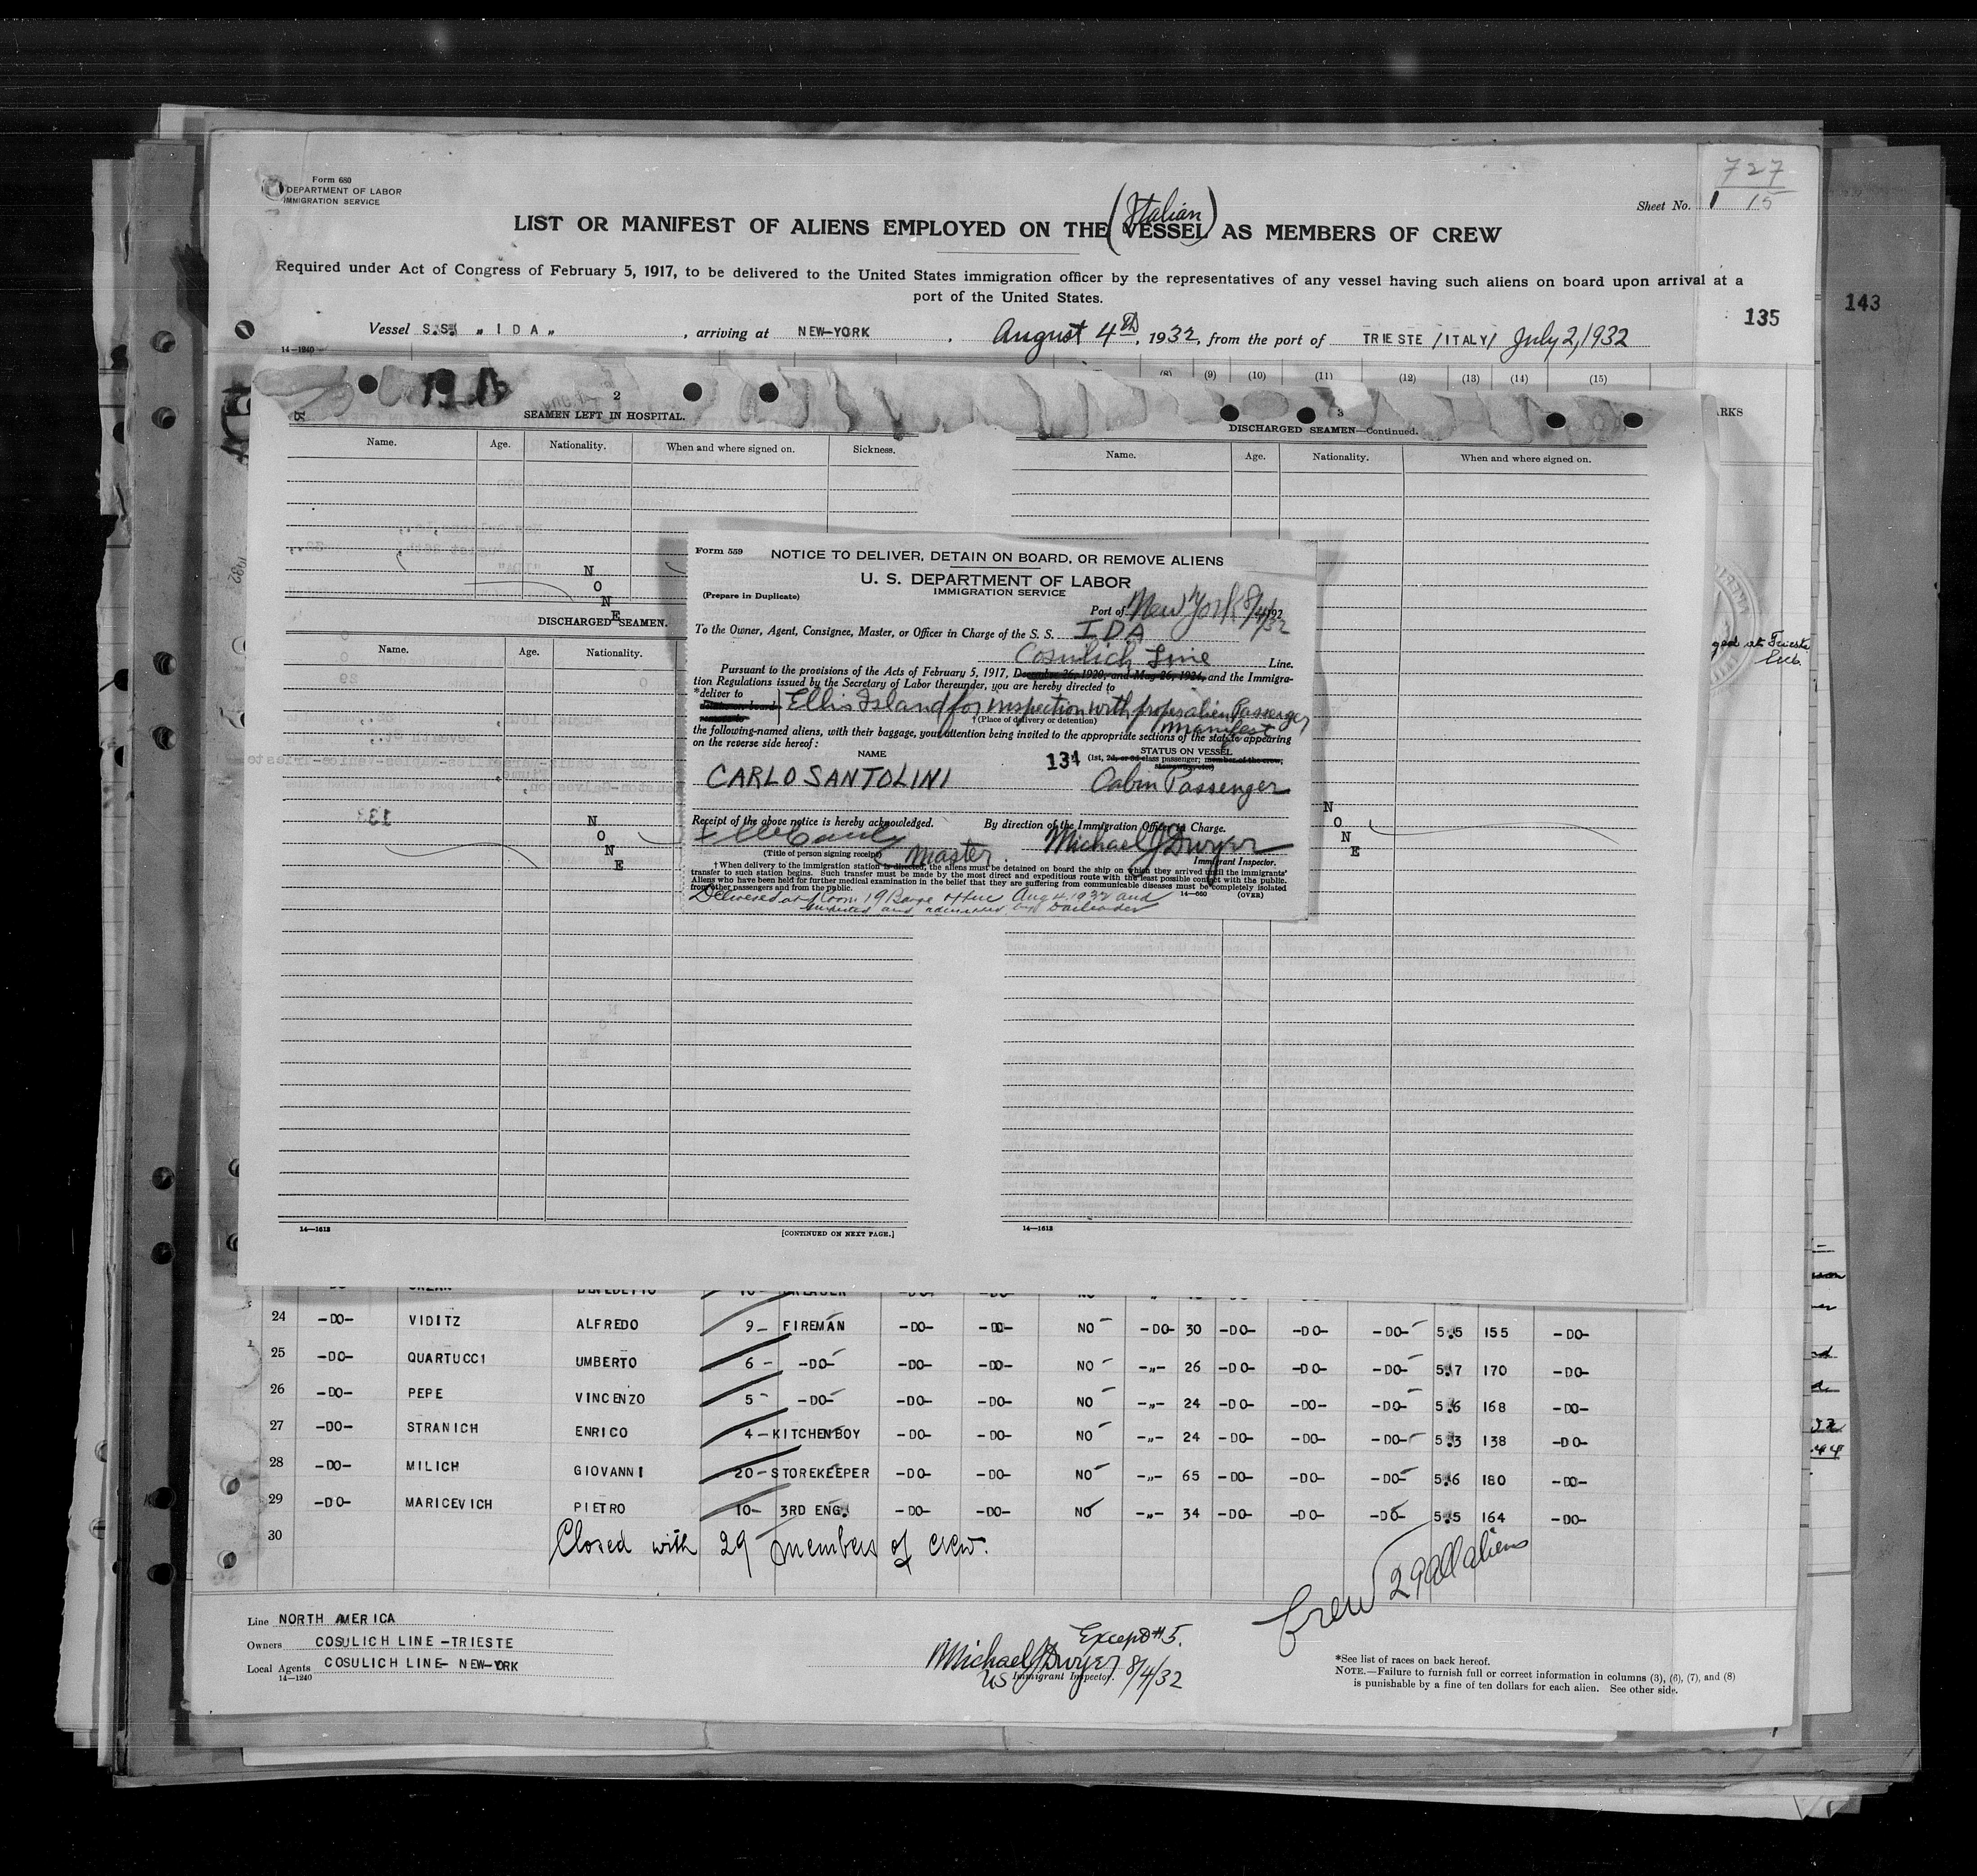 Form 680
DEPARTMENT OF LABOR
IMMIGRATION SERVICE
727
15
Sheet No. 1
LIST OR MANIFEST OF ALIENS EMPLOYED ON THE (Italian) VESSEL AS MEMBERS OF CREW
Required under Act of Congress of February 5, 1917, to be delivered to the United States immigration officer by the representatives of any vessel having such aliens on board upon arrival at a
port of the United States.
135
143
Vessel S.S. "IDA", arriving at NEW-YORK, August 4th, 1932, from the port of TRIESTE /ITALY/ July 2, 1932
14—1240
(8) (9) (10) (11) (12) (13) (14) (15)
ARKS
2
SEAMEN LEFT IN HOSPITAL.
Name. Age. Nationality. When and where signed on. Sickness.
NONE
DISCHARGED SEAMEN.
Name. Age. Nationality.
NONE
14—1613
[CONTINUED ON NEXT PAGE.]
3
DISCHARGED SEAMEN—Continued.
Name. Age. Nationality. When and where signed on.
NONE
14—1613
ged at Trieste
Form 559
NOTICE TO DELIVER, DETAIN ON BOARD, OR REMOVE ALIENS
U. S. DEPARTMENT OF LABOR
IMMIGRATION SERVICE
(Prepare in Duplicate)
Port of New York 8/4/32 192
To the Owner, Agent, Consignee, Master, or Officer in Charge of the S. S. IDA
Cosulich Line Line.
Pursuant to the provisions of the Acts of February 5, 1917, December 26, 1920, and May 26, 1924, and the Immigra-
tion Regulations issued by the Secretary of Labor thereunder, you are hereby directed to
*deliver to
detain on board
remove to
Ellis Island for inspection with proper alien Passenger
manifest
†(Place of delivery or detention)
the following-named aliens, with their baggage, your attention being invited to the appropriate sections of the statute appearing
on the reverse side hereof:
NAME
134
STATUS ON VESSEL
(1st, 2d, or 3d class passenger; member of the crew,
stowaway, etc.)
CARLO SANTOLINI
Cabin Passenger
Receipt of the above notice is hereby acknowledged.
By direction of the Immigration Officer in Charge.
Michael J Dwyer
(Title of person signing receipt)
Master.
Immigrant Inspector.
†When delivery to the immigration station is directed, the aliens must be detained on board the ship on which they arrived until the immigrants'
transfer to such station begins. Such transfer must be made by the most direct and expeditious route with the least possible contact with the public.
Aliens who have been held for further medical examination in the belief that they are suffering from communicable diseases must be completely isolated
from other passengers and from the public.
14—660
(OVER)
Delivered at Room 19 Barge Office Aug 4, 1932 and
inspected and admitted by
BENEDETTO
24 -DO- VIDITZ ALFREDO 9- FIREMAN -DO- -DO- NO -DO- 30 -DO- -DO- -DO- 5.5 155 -DO-
25 -DO- QUARTUCCI UMBERTO 6- -DO- -DO- -DO- NO -"- 26 -DO- -DO- -DO- 5.7 170 -DO-
26 -DO- PEPE VINCENZO 5- -DO- -DO- -DO- NO -"- 24 -DO- -DO- -DO- 5.6 168 -DO-
27 -DO- STRANICH ENRICO 4- KITCHENBOY -DO- -DO- NO -"- 24 -DO- -DO- -DO- 5.3 138 -DO-
28 -DO- MILICH GIOVANNI 20- STOREKEEPER -DO- -DO- NO -"- 65 -DO- -DO- -DO- 5.6 180 -DO-
29 -DO- MARICEVICH PIETRO 10- 3RD ENG. -DO- -DO- NO -"- 34 -DO- -DO- -DO- 5.5 164 -DO-
30 Closed with 29 members of crew.
Crew 29 all aliens
Line NORTH AMERICA
Owners COSULICH LINE -TRIESTE
Local Agents COSULICH LINE- NEW-YORK
14—1240
Except #5.
Michael J Dwyer 8/4/32
US Immigrant Inspector.
*See list of races on back hereof.
NOTE.—Failure to furnish full or correct information in columns (3), (6), (7), and (8)
is punishable by a fine of ten dollars for each alien. See other side.